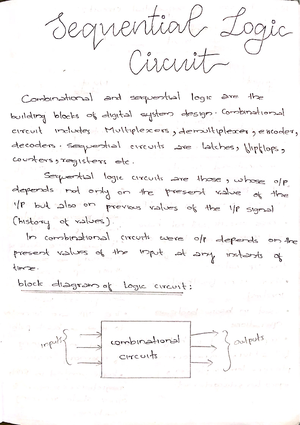 Sequential Logic
Circuit
Combinational and sequential logic are the
building blocks of digital system design. Combinational
circuit includes Multiplexers, demultiplexer, encoder,
decoders. Sequential circuits are latches, flipflops,
counters, registers etc.
Sequential logic circuits are those, whose o/p
depends not only on the present value of the
i/p but also on previous values of the i/p signal
(history of values)
In combinational circuits were o/p depends on the
present values of the input at any instants of
time.
block diagram of Logic circuit:
inputs
combinational
circuits
outputs